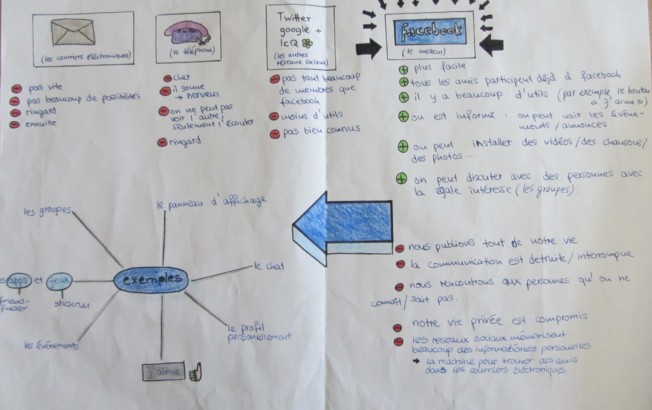 (les courriers éléctroniques)
pas vite
pas beaucoup de possibilités
ringard
ennuite
(le téléphone)
cher
il sonne
→ nerveux
on ne peut pas
voir l'autre,
seulement l'écouter
ringard
Twitter
google +
IcQ
(les autres
réseaux sociaux)
pas tant beaucoup
de membres que
facebook
moins d'utils
pas bien connus
facebook
(le meilleur)
plus facile
tous les amis participent déjà à facebook
il y a beaucoup d'utils (par exemple, le bouton
« J'aime »)
on est informé : on peut voir les événe-
ments / annonces
on peut installer des vidéos/des chansons/
des photos...
on peut discuter avec des personnes avec
la égale intéresse (les groupes).
nous publions tout de notre vie
la communication est detruite / interrompue
nous rencontrons aux personnes qu'on ne
connaît/sait pas.
notre vie privée est compromis
les reseaux sociaux mémorisent
beaucoup des informationes personelles
→ la machine pour trouver des amis
dans les courriers électroniques
exemples
les groupes
le panneau d'affichage
le chat
le profil
personellement
J'aime
les événements
apps et jeux
friend-
finder